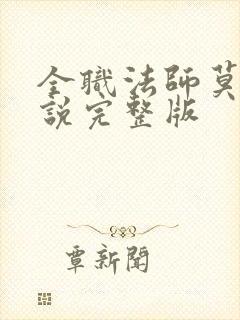 全職法師莫
說完整版
覃新聞